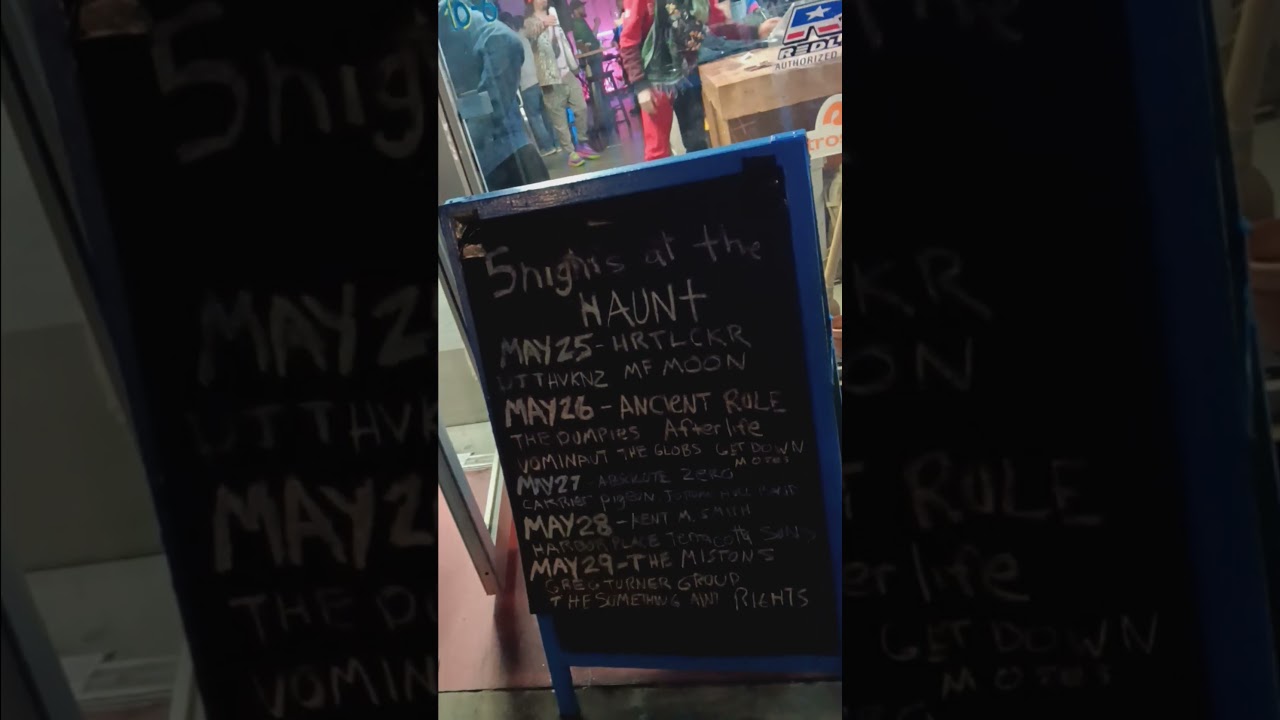 5 nights at the
HAUNT
MAY 25 - HRTLCKR
UTTHVKNZ MF MOON
MAY 26 - ANCIENT RULE
THE DUMPIES Afterlife
VOMINAUT THE GLOBS GET DOWN
MOSES
MAY 27 - ABSOLUTE ZERO
CARRIER pigeon
MAY 28 - KENT M. SMITH
HARBOR PLACE Terracotta SUNS
MAY 29 - THE MISTONS
GREG TURNER GROUP
THE SOMETHING AINT RIGHTS
REDL
AUTHORIZED